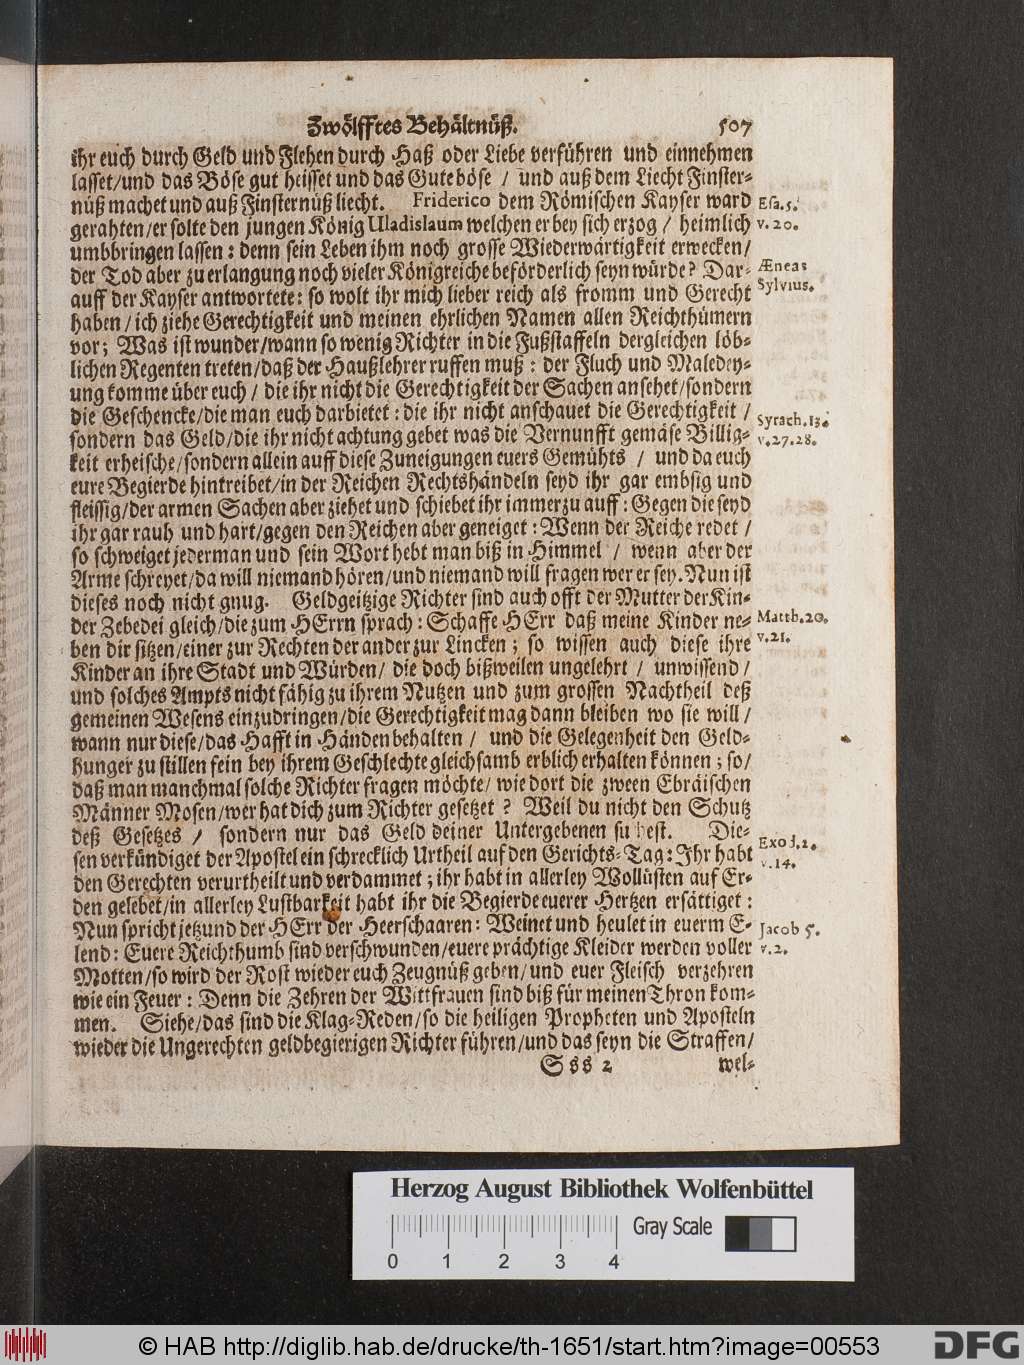 Zwölfftes Behältnüß. 507
ihr euch durch Geld und Flehen durch Haß oder Liebe verführen und einnehmen
lasset/und das Böse gut heisset und das Gute böse / und auß dem Liecht Finster-
nüß machet und auß Finsternüß liecht. Friderico dem Römischen Kayser ward
Esa. 5.
gerahten/er solte den jungen König Uladislaum welchen er bey sich erzog / heimlich
v. 20.
umbbringen lassen: denn sein Leben ihm noch grosse Wiederwärtigkeit erwecken/
der Tod aber zu erlangung noch vieler Königreiche beförderlich seyn würde? Dar-
Æneas
auff der Kayser antwortete: so wolt ihr mich lieber reich als fromm und Gerecht
Sylvius.
haben/ich ziehe Gerechtigkeit und meinen ehrlichen Namen allen Reichthümern
vor; Was ist wunder/wann so wenig Richter in die Fußstaffeln dergleichen löb-
lichen Regenten treten/daß der Haußlehrer ruffen muß: der Fluch und Maledey-
ung komme über euch / die ihr nicht die Gerechtigkeit der Sachen ansehet/sondern
die Geschencke/die man euch darbietet: die ihr nicht anschauet die Gerechtigkeit /
Syrach. 13.
sondern das Geld/die ihr nicht achtung gebet was die Vernunfft gemäse Billig-
v. 27. 28.
keit erheische/sondern allein auff diese Zuneigungen euers Gemühts / und da euch
eure Begierde hintreibet/in der Reichen Rechtshändeln seyd ihr gar embsig und
fleissig/der armen Sachen aber ziehet und schiebet ihr immerzu auff: Gegen die seyd
ihr gar rauh und hart/gegen den Reichen aber geneiget: Wenn der Reiche redet /
so schweiget jederman und sein Wort hebt man biß in Himmel / wenn aber der
Arme schreyet/da will niemand hören/und niemand will fragen wer er sey. Nun ist
dieses noch nicht gnug. Geldgeitzige Richter sind auch offt der Mutter der Kin-
der Zebedei gleich/die zum HErrn sprach: Schaffe HErr daß meine Kinder ne-
Matth. 20.
ben dir sitzen/einer zur Rechten der ander zur Lincken; so wissen auch diese ihre
v. 21.
Kinder an ihre Stadt und Würden/ die doch bißweilen ungelehrt / unwissend /
und solches Ampts nicht fähig zu ihrem Nutzen und zum grossen Nachtheil deß
gemeinen Wesens einzudringen/die Gerechtigkeit mag dann bleiben wo sie will /
wann nur diese/das Hafft in Händen behalten / und die Gelegenheit den Geld-
hunger zu stillen fein bey ihrem Geschlechte gleichsamb erblich erhalten können; so/
daß man manchmal solche Richter fragen möchte/ wie dort die zween Ebräischen
Männer Mosen/wer hat dich zum Richter gesetzet ? Weil du nicht den Schutz
deß Gesetzes / sondern nur das Geld deiner Untergebenen suchest. Die-
Exod. 2.
sen verkündiget der Apostel ein schrecklich Urtheil auf den Gerichts-Tag: Ihr habt
v. 14.
den Gerechten verurtheilt und verdammet; ihr habt in allerley Wollüsten auf Er-
den gelebet/in allerley Lustbarkeit habt ihr die Begierde euerer Hertzen ersättiget:
Nun spricht jetzund der HErr der Heerschaaren: Weinet und heulet in euerm E-
Jacob 5.
lend: Euere Reichthumb sind verschwunden/euere prächtige Kleider werden voller
v. 2.
Motten/so wird der Rost wieder euch Zeugnüß geben/und euer Fleisch verzehren
wie ein Feuer: Denn die Zehren der Wittfrauen sind biß für meinen Thron kom-
men. Siehe/das sind die Klag-Reden/so die heiligen Propheten und Aposteln
wieder die Ungerechten geldbegierigen Richter führen/und das seyn die Straffen/
Sss 2 wel-
Herzog August Bibliothek Wolfenbüttel
Gray Scale
0 1 2 3 4
© HAB http://diglib.hab.de/drucke/th-1651/start.htm?image=00553
DFG